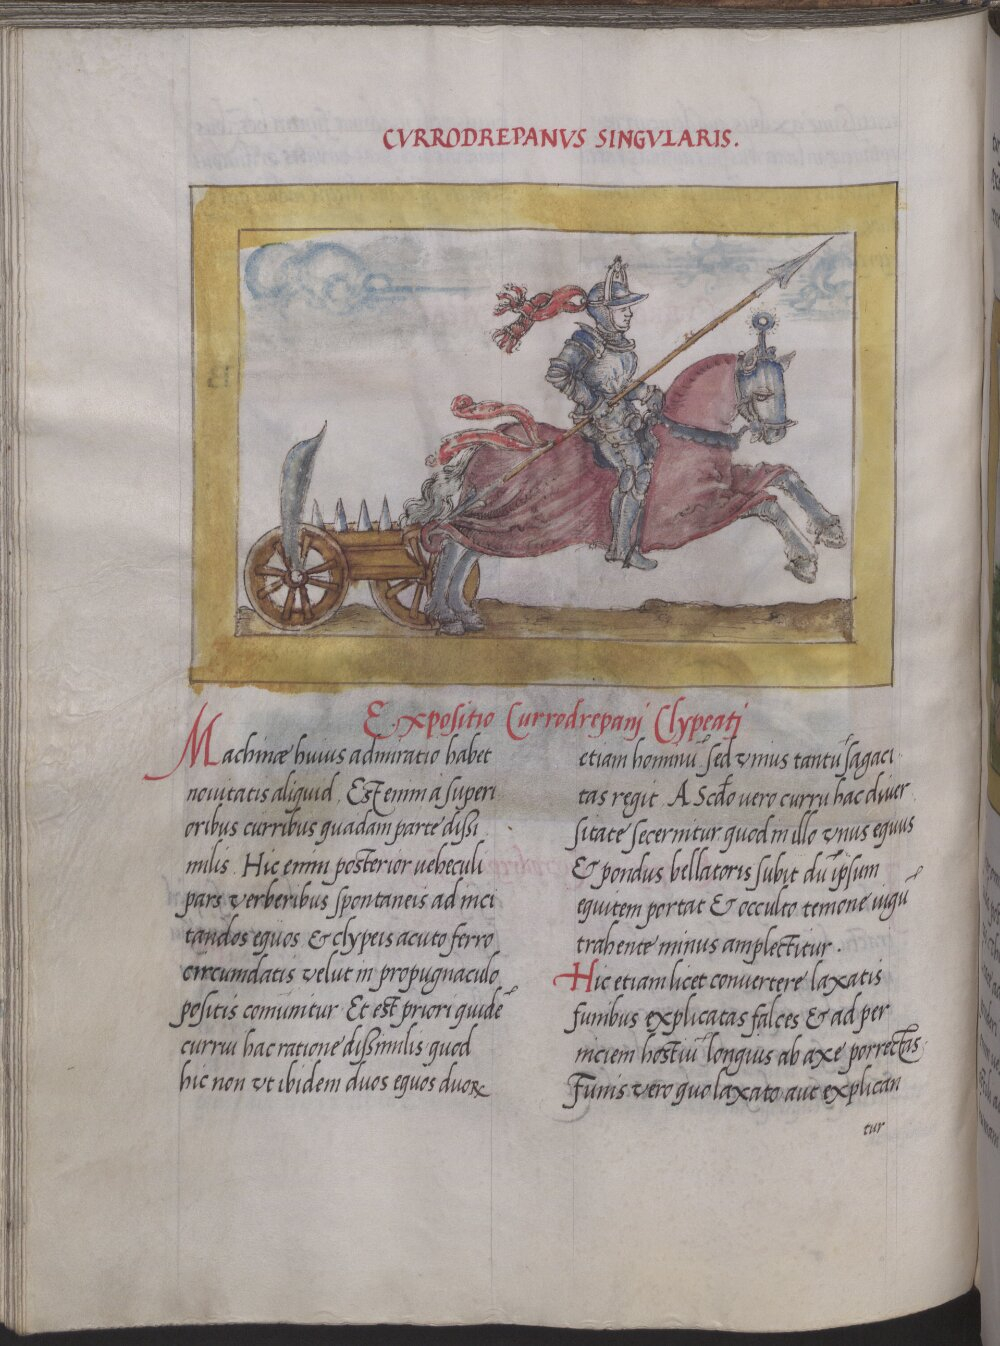 CVRRODREPANVS SINGVLARIS.
Expositio Currodrepanj Clypeatj
Machinæ huius admiratio habet
nouitatis aliquid. Est enim a superi
oribus curribus quadam parte dissi
milis. Hic enim posterior uehiculi
pars verberibus spontaneis ad inci
tandos equos & clypeis acuto ferro
circumdatis velut in propugnaculo
positis comunitur. Et est priori quidẽ
currui hac ratione dissimilis quod
hic non vt ibidem duos equos duoꝝ
etiam hominũ sed vnius tantũ sagaci
tas regit. A Scdo vero curru hac diuer
sitate secernitur quod in illo vnus equus
& pondus bellatoris subit dũ ipsum
equitem portat & occulto temone iugũ
trahente minus amplectitur.
Hic etiam licet conuertere laxatis
funibus explicatas falces & ad per
niciem hostiũ longius ab axe porrectas
Funis vero quo laxato aut explican
tur